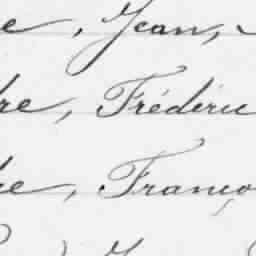 e, Jean,
re, Frédéric
e, Franço